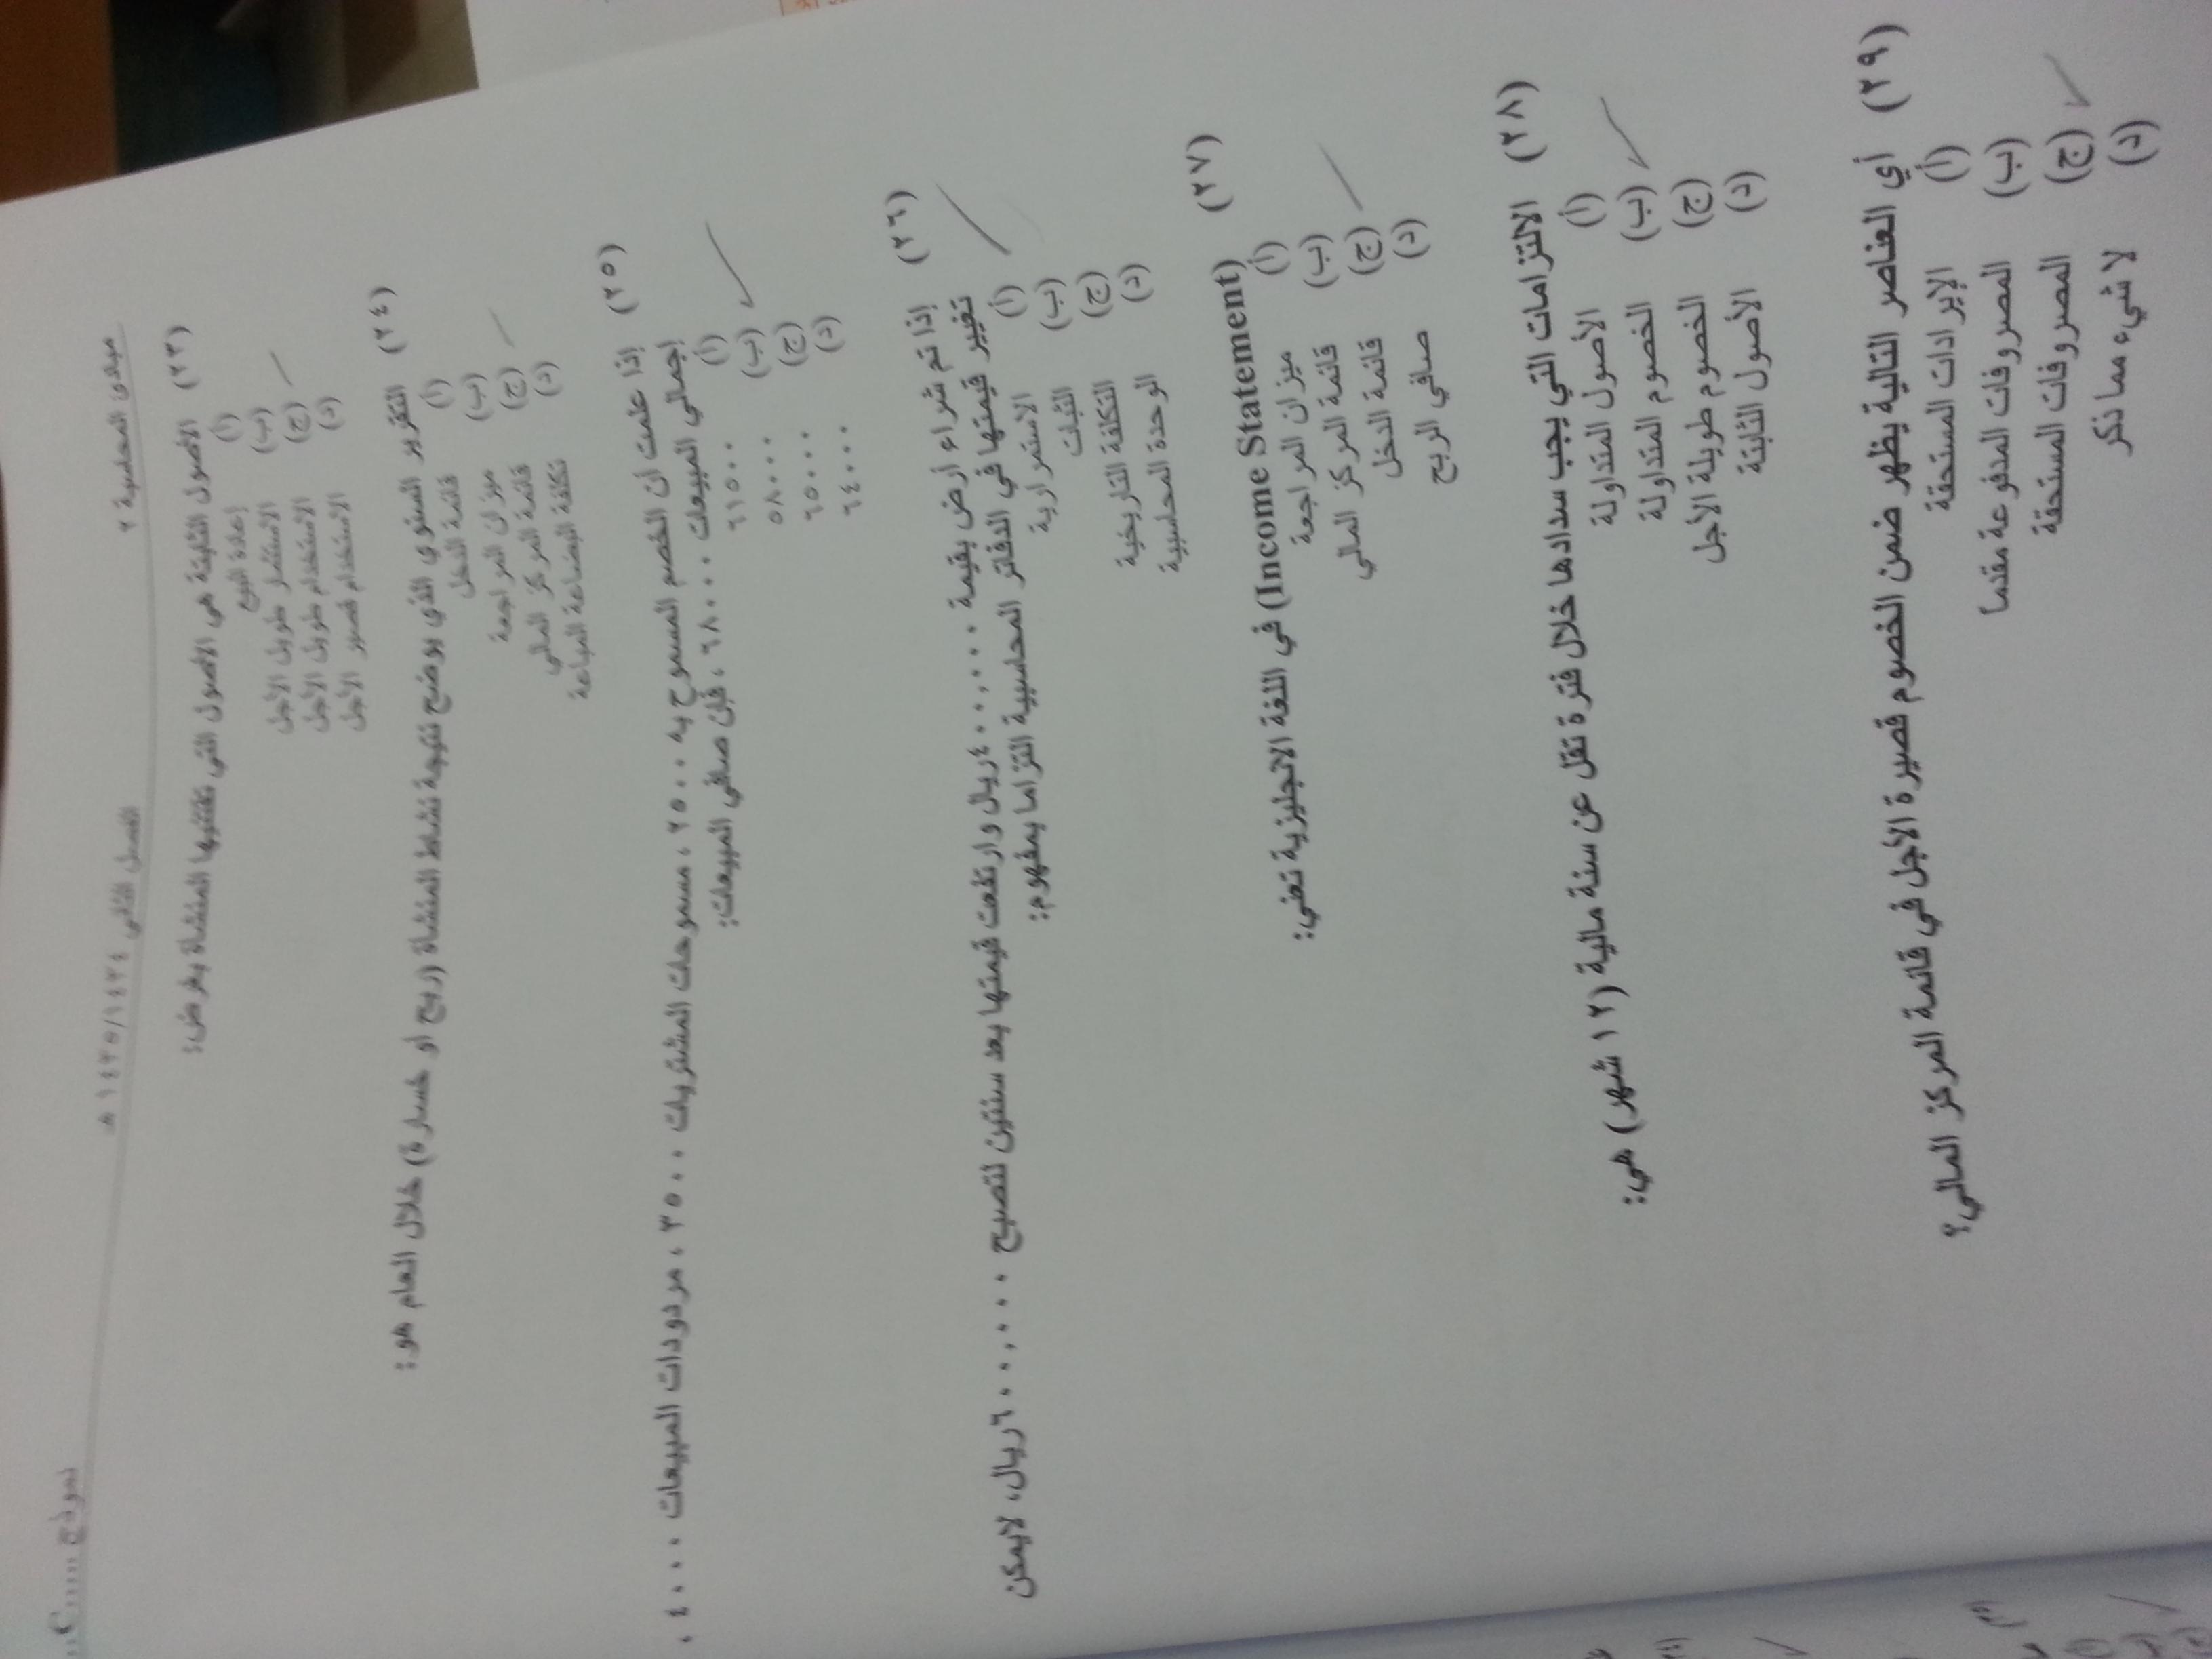 مبادئ المحاسبة ٢ الفصل الثاني ١٤٣٤/١٤٣٥ هـ نموذج ......C..
(٢٣) الأصول الثابتة هي الأصول التي تقتنيها المنشأة بغرض:
(أ) إعادة البيع
(ب) الاستثمار طويل الأجل
(ج) الاستخدام طويل الأجل
(د) الاستخدام قصير الأجل
(٢٤) التقرير السنوي الذي يوضح نتيجة نشاط المنشأة (ربح أو خسارة) خلال العام هو:
(أ) قائمة الدخل
(ب) ميزان المراجعة
(ج) قائمة المركز المالي
(د) تكلفة البضاعة المباعة
(٢٥) إذا علمت ان الخصم المسموح به ٢٥٠٠، مسموحات المشتريات ٣٥٠٠، مردودات المبيعات ٤٠٠٠،
إجمالي المبيعات ٦٨٠٠٠، فإن صافي المبيعات:
(أ) ٦١٥٠٠
(ب) ٥٨٠٠٠
(ج) ٦٥٠٠٠
(د) ٦٤٠٠٠
(٢٦) إذا تم شراء أرض بقيمة ٤٠٠,٠٠٠ ريال وارتفعت قيمتها بعد سنتين لتصبح ٦٠٠,٠٠٠ ريال، لايمكن
تغيير قيمتها في الدفاتر المحاسبية التزاما بمفهوم:
(أ) الاستمرارية
(ب) الثبات
(ج) التكلفة التاريخية
(د) الوحدة المحاسبية
(٢٧) (Income Statement) في اللغة الانجليزية تعني:
(أ) ميزان المراجعة
(ب) قائمة المركز المالي
(ج) قائمة الدخل
(د) صافي الربح
(٢٨) الالتزامات التي يجب سدادها خلال فترة تقل عن سنة مالية (١٢ شهر) هي:
(أ) الأصول المتداولة
(ب) الخصوم المتداولة
(ج) الخصوم طويلة الأجل
(د) الأصول الثابتة
(٢٩) أي العناصر التالية يظهر ضمن الخصوم قصيرة الأجل في قائمة المركز المالي؟
(أ) الإيرادات المستحقة
(ب) المصروفات المدفوعة مقدماً
(ج) المصروفات المستحقة
(د) لا شيء مما ذكر